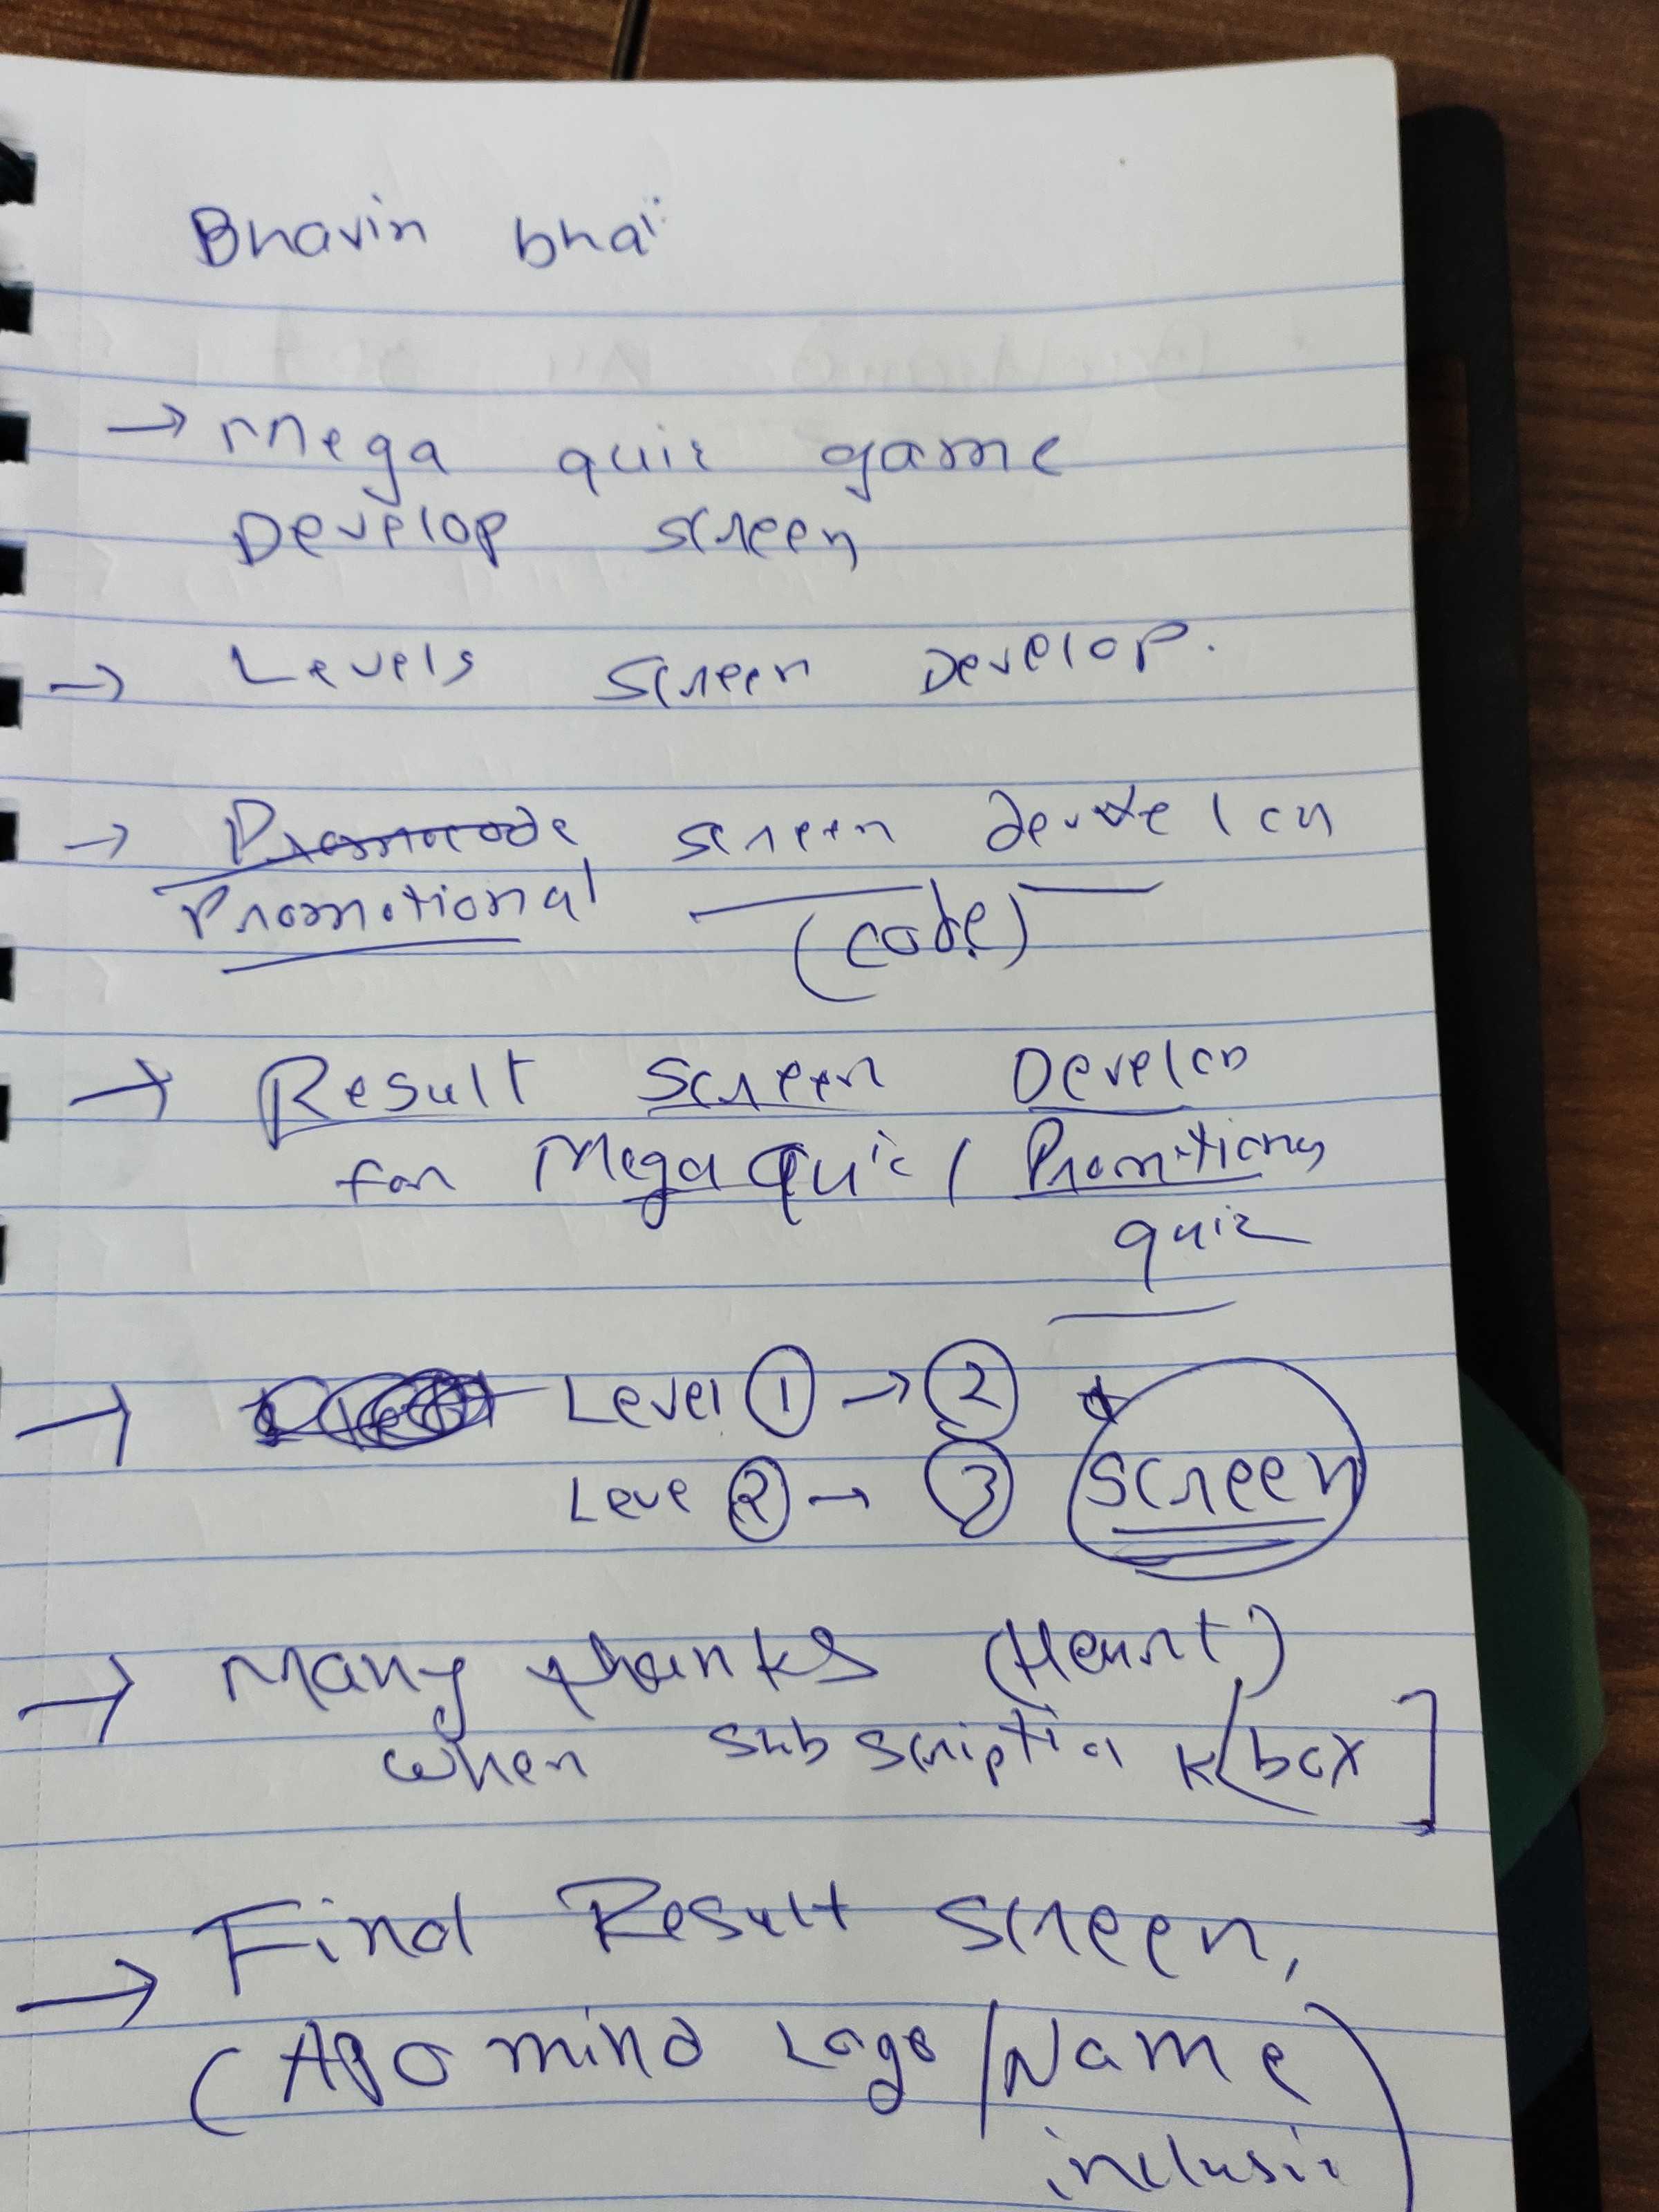 Bhavin bhai
→ Mega quiz game
Develop screen
→ Levels screen Develop.
→ Promocode screen
Promotional (code)
→ Result screen Develop
for Mega Quiz / Promotional
quiz
→ Level 1 → 2
Leve 2 → 3 screen
→ Many thanks (Heart)
when subscription box]
→ Find Result screen,
(APO mind Logo / Name